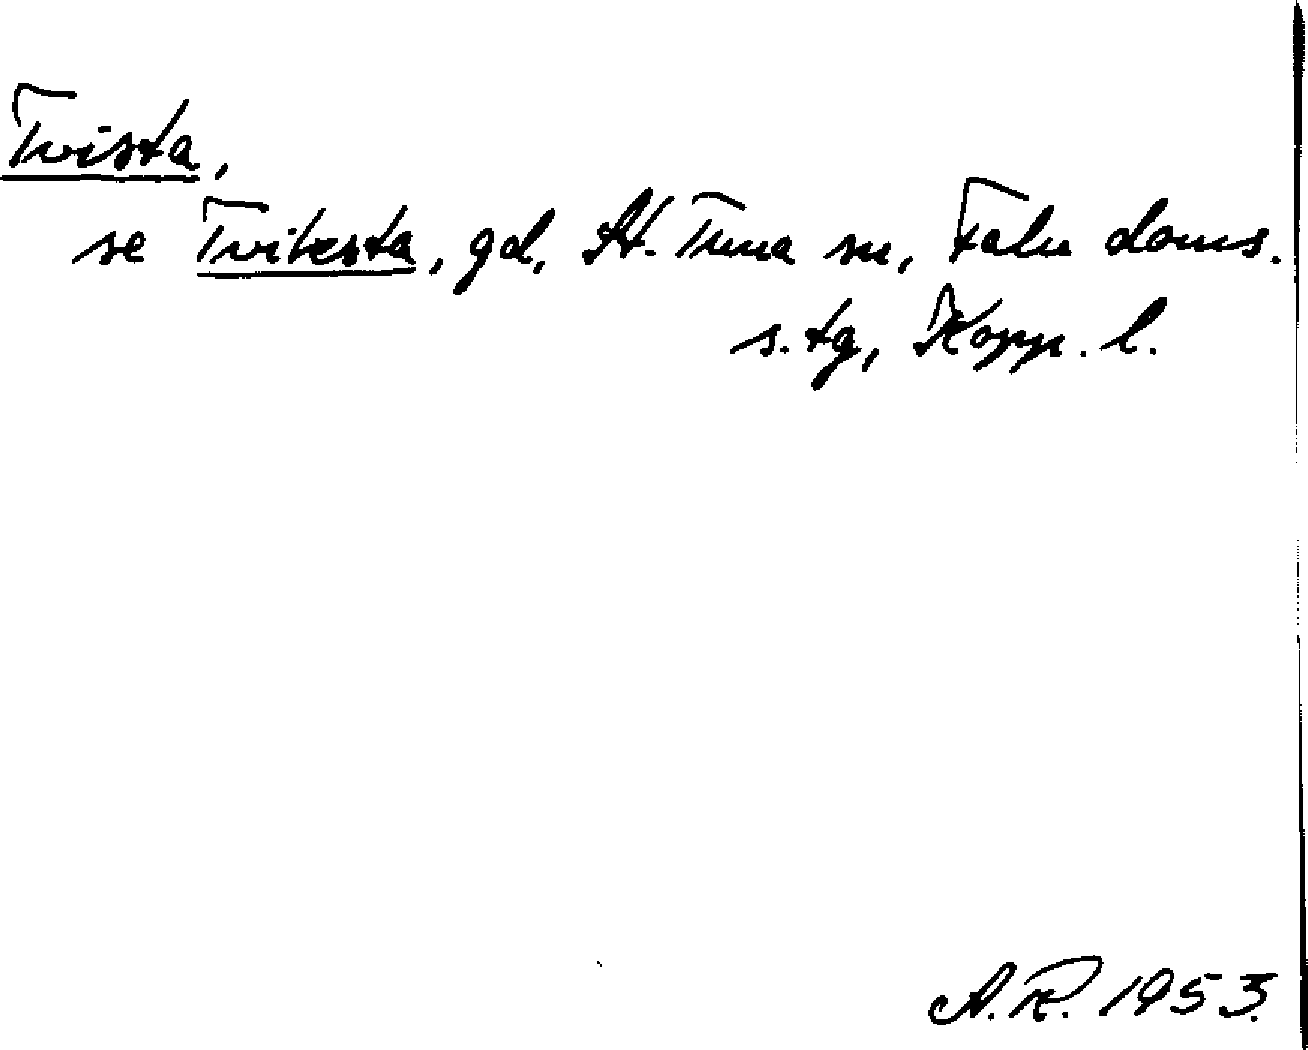 Tvista,
se Tvitesta, gd, St. Tuna sn, Falu doms.
s. tg, Kopp. l.
A.R. 1953.